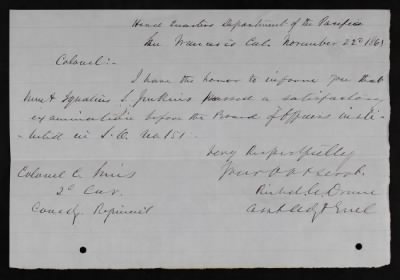 Head Quarters Department of the Pacific
San Francisco Cal. November 22d 1861
Colonel:-
I have the honor to inform you that
Ignatius S. Jenkins passed a satisfactory
examination before the Board of Officers insti-
tuted in S.O. No. 151.
Very Respectfully
Your Obt Servt.
Richd. C. Drum
Asst Adjt Genl
Colonel C. Sims
2d Cav.